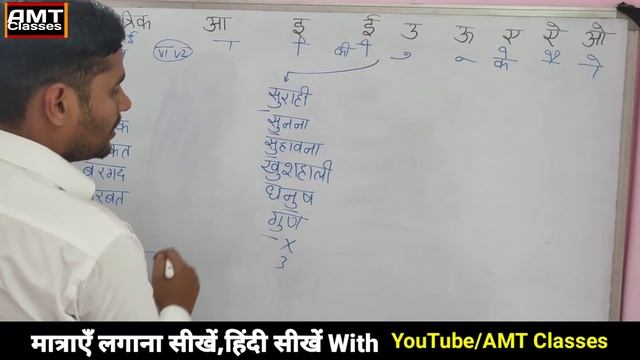 AMT
Classes
त्रिक आ इ ई उ ऊ ए ऐ ओ
V1 V2 की के
सुराही
सुनना
सुहावना
खुशहाली
बरगद
धनुष
रबत
गुण
X
3
मात्राएँ लगाना सीखें,हिंदी सीखें With YouTube/AMT Classes